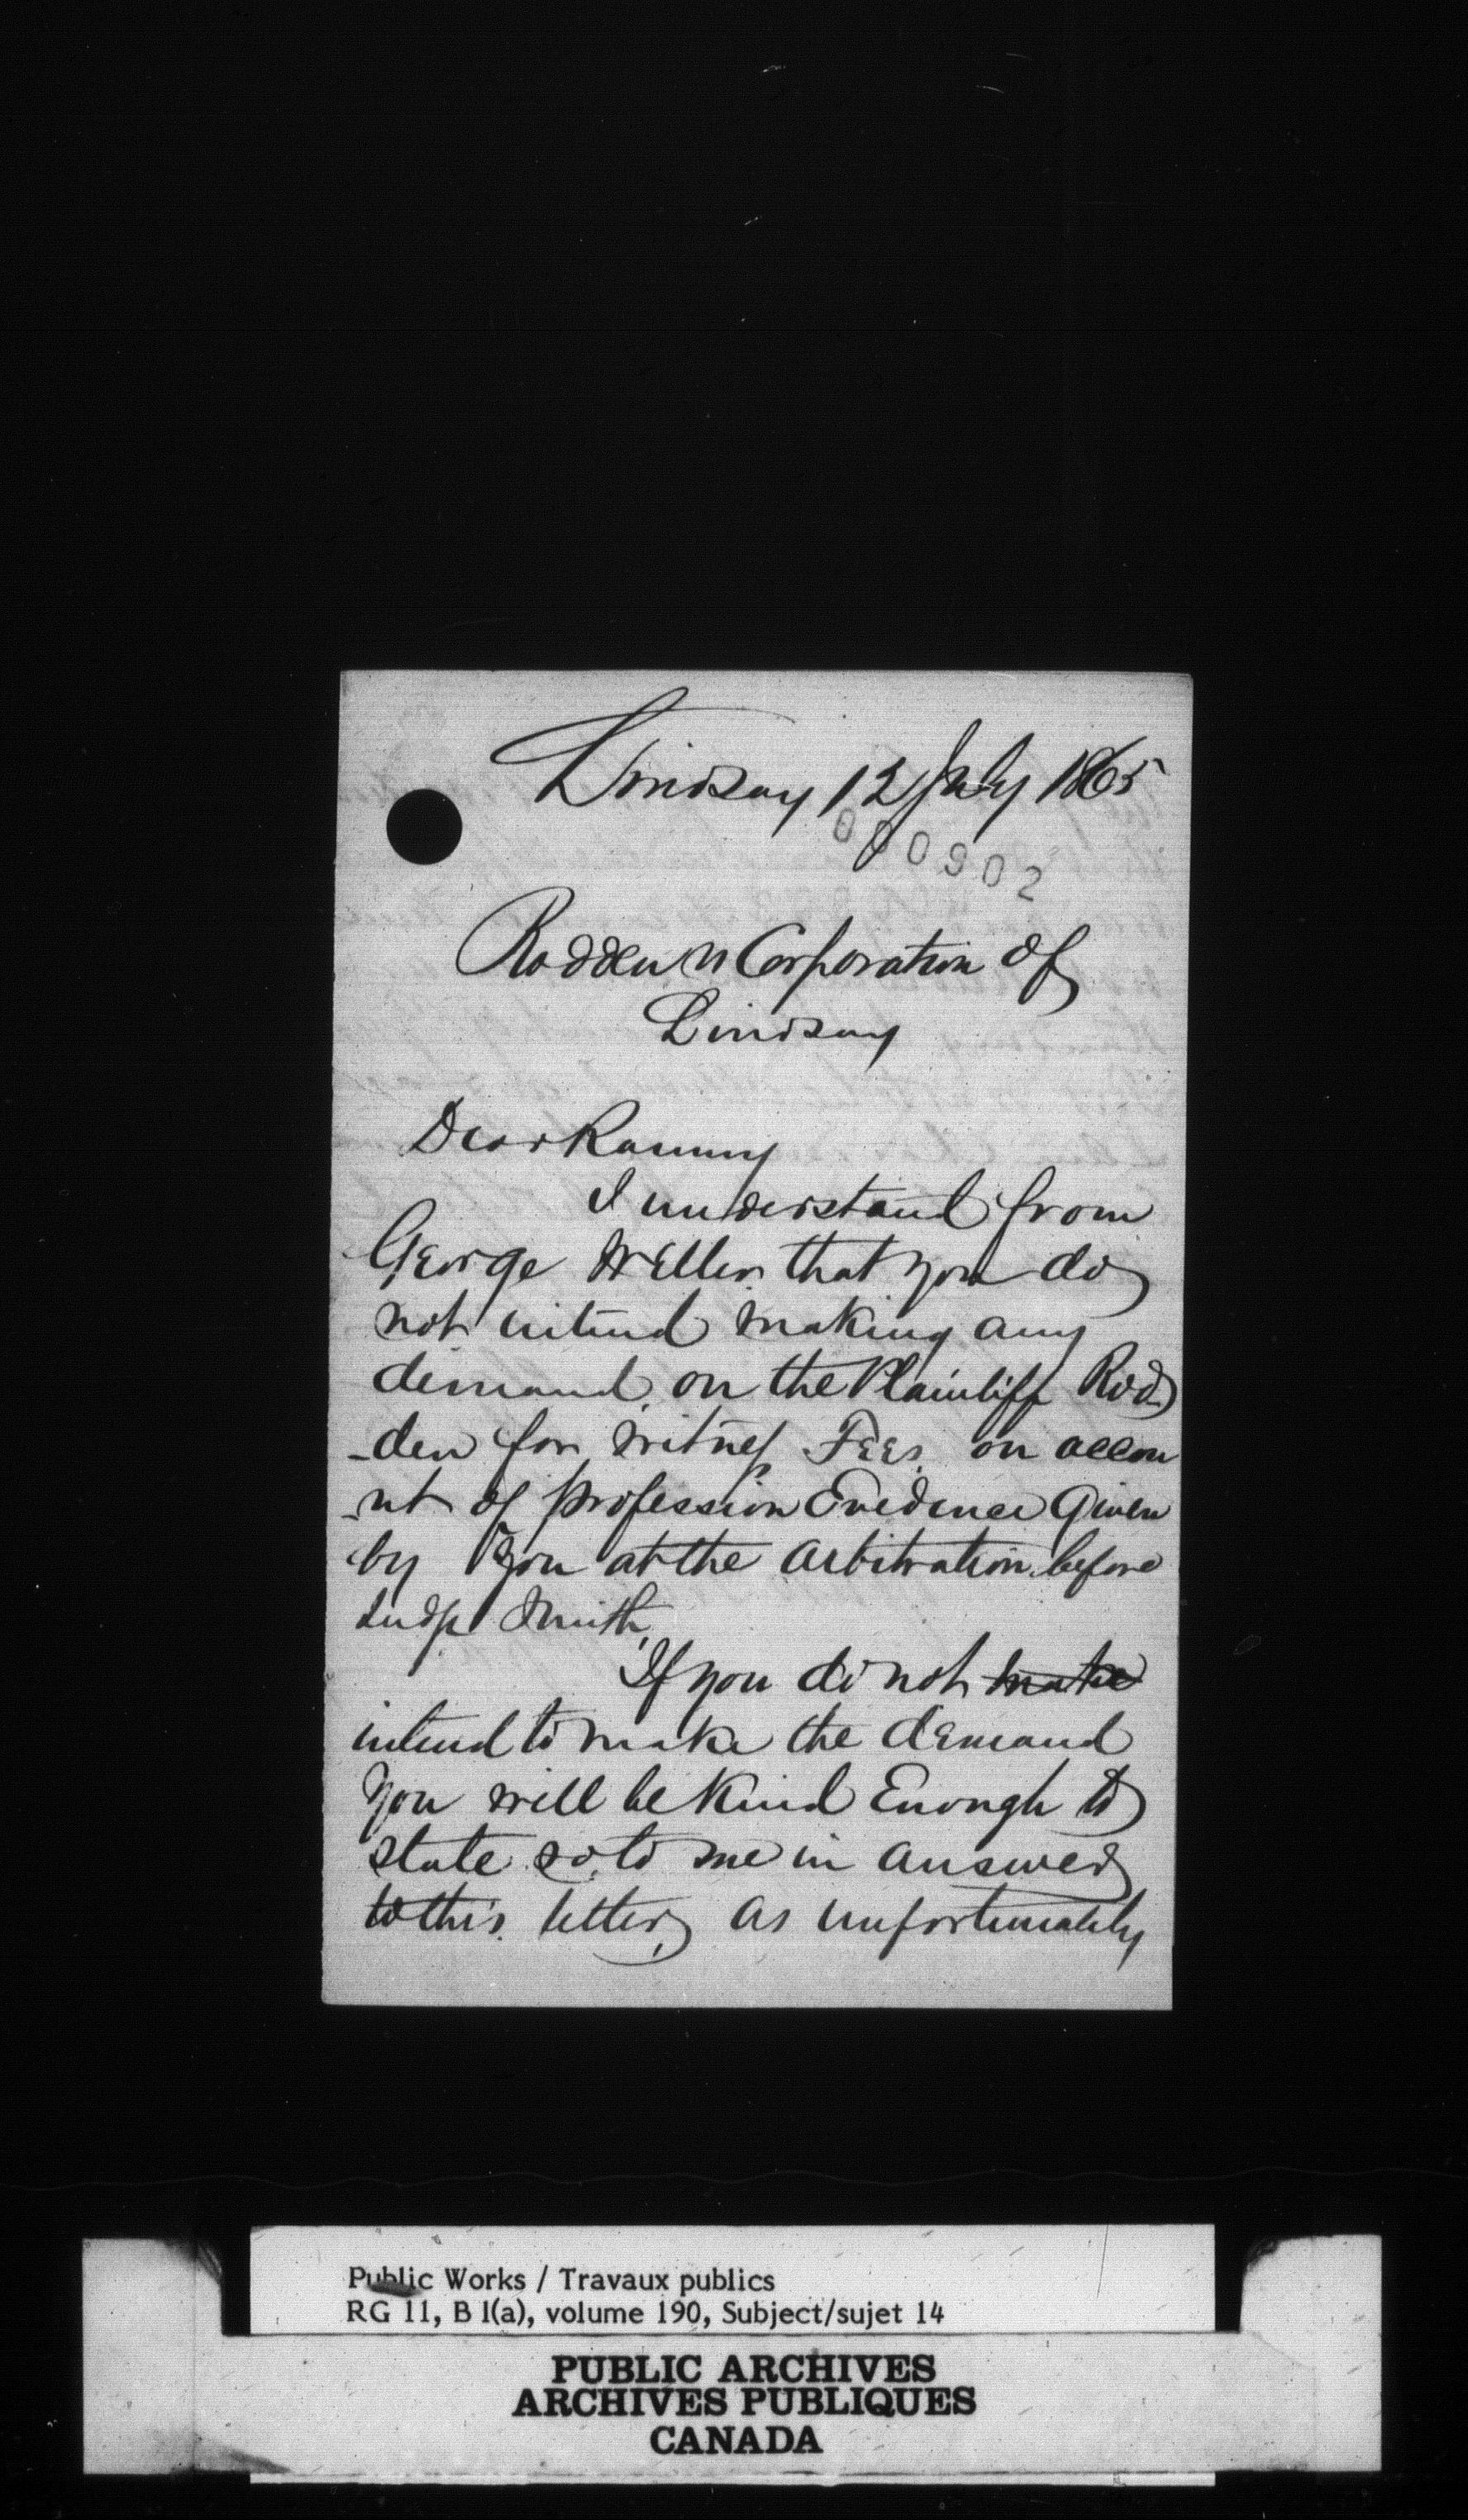 Lindsay 12 July 1865
000902
Rodden vs Corporation of
Lindsay
Dear Ranney
I understand from
George Weller that you do
not intend making any
demand on the Plaintiff Rod-
-den for witness Fees on accou
-nt of profession Evidence Given
by You at the arbitration before
Judge Smith
If you do not make
intend to make the demand
You will be kind Enough to
state so to me in answer
to this letter, as unfortunately
Public Works / Travaux publics
RG 11, B 1(a), volume 190, Subject/sujet 14
PUBLIC ARCHIVES
ARCHIVES PUBLIQUES
CANADA